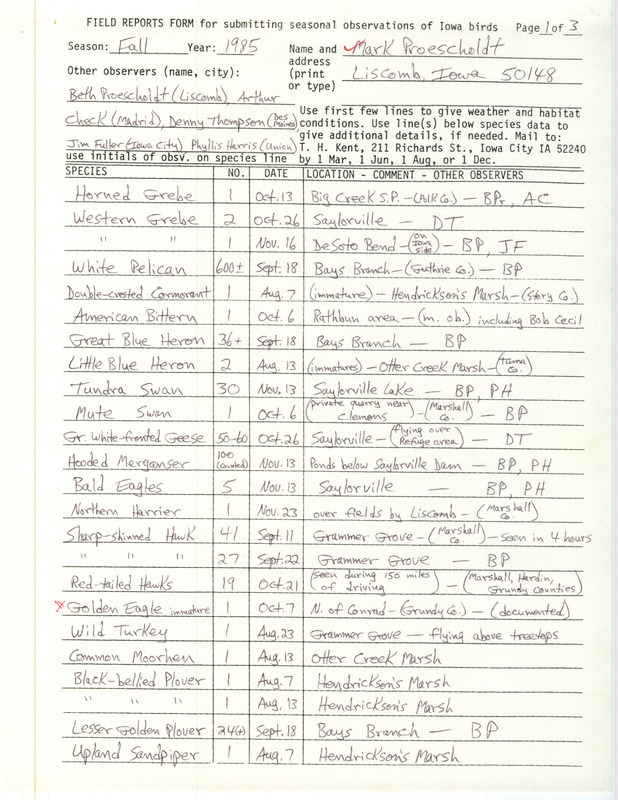 FIELD REPORTS FORM for submitting seasonal observations of Iowa birds Page 1 of 3
Season: Fall Year: 1985 Name and address (print or type) Mark Proescholdt
Liscomb, Iowa 50148
Other observers (name, city):
Beth Proescholdt (Liscomb), Arthur
Check (Madrid), Denny Thompson (Des Moines)
Jim Fuller (Iowa City) Phyllis Harris (Union)
use initials of obsv. on species line
Use first few lines to give weather and habitat
conditions. Use line(s) below species data to
give additional details, if needed. Mail to:
T. H. Kent, 211 Richards St., Iowa City IA 52240
by 1 Mar, 1 Jun, 1 Aug, or 1 Dec.
SPECIES NO. DATE LOCATION - COMMENT - OTHER OBSERVERS
Horned Grebe 1 Oct.13 Big Creek S.P. - (Polk Co.) - BPr, AC
Western Grebe 2 Oct.26 Saylorville - DT
" " 1 Nov. 16 DeSoto Bend - (on Iowa side) - BP, JF
White Pelican 600± Sept. 18 Bays Branch - (Guthrie Co.) - BP
Double-crested Cormorant 1 Aug. 7 (immature) - Hendrickson's Marsh - (Story Co.)
American Bittern 1 Oct. 6 Rathbun area - (m. ob.) including Bob Cecil
Great Blue Heron 36+ Sept. 18 Bays Branch - BP
Little Blue Heron 2 Aug. 13 (immatures) - Otter Creek Marsh - (Tama Co.)
Tundra Swan 30 Nov. 13 Saylorville Lake - BP, PH
Mute Swan 1 Oct. 6 (private quarry near Clemons) - (Marshall Co.) - BP
Gr. White-fronted Geese 50-60 Oct.26 Saylorville - (flying over Refuge area) - DT
Hooded Merganser 100 (counted) Nov.13 Ponds below Saylorville Dam - BP, PH
Bald Eagles 5 Nov. 13 Saylorville - BP, PH
Northern Harrier 1 Nov. 23 over fields by Liscomb - (Marshall Co.)
Sharp-shinned Hawk 41 Sept. 11 Grammer Grove - (Marshall Co.) - seen in 4 hours
" " " 27 Sept.22 Grammer Grove - BP
Red-tailed Hawks 19 Oct.21 (seen during 150 miles of driving) - (Marshall, Hardin, Grundy Counties)
Golden Eagle immature 1 Oct.7 N. of Conrad - (Grundy Co.) - (documented)
Wild Turkey 1 Aug.23 Grammer Grove - flying above treetops
Common Moorhen 1 Aug. 13 Otter Creek Marsh
Black-bellied Plover 1 Aug. 7 Hendrickson's Marsh
" " " 1 Aug. 13 Hendrickson's Marsh
Lesser Golden Plover 24(+) Sept. 18 Bays Branch - BP
Upland Sandpiper 1 Aug. 7 Hendrickson's Marsh